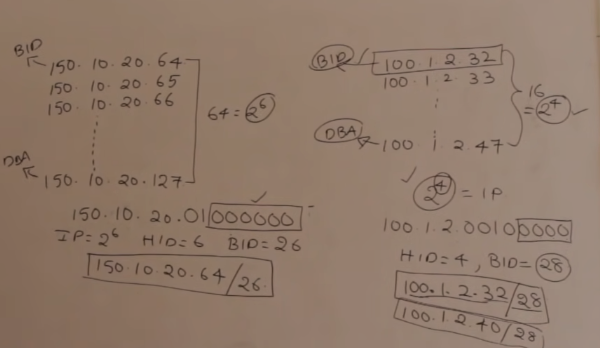 BID
150.10.20.64
150.10.20.65
150.10.20.66
64 = 2⁶
DBA
150.10.20.127
150.10.20.01000000
IP = 2⁶ HID = 6 BID = 26
150.10.20.64/26
BID
100.1.2.32
100.1.2.33
16
= 2⁴
DBA
100.1.2.47
2⁴ = IP
100.1.2.00100000
HID = 4, BID = 28
100.1.2.32/28
100.1.2.40/28